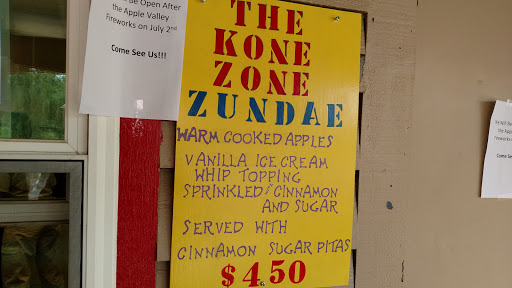 Be Open After
the Apple Valley
Fireworks on July 2nd
Come See Us!!!
THE
KONE
ZONE
ZUNDAE
WARM COOKED APPLES
VANILLA ICE CREAM
WHIP TOPPING
SPRINKLED/CINNAMON
AND SUGAR
SERVED WITH
CINNAMON SUGAR PITAS
$4.50
the Apple
Fireworks
Come Se